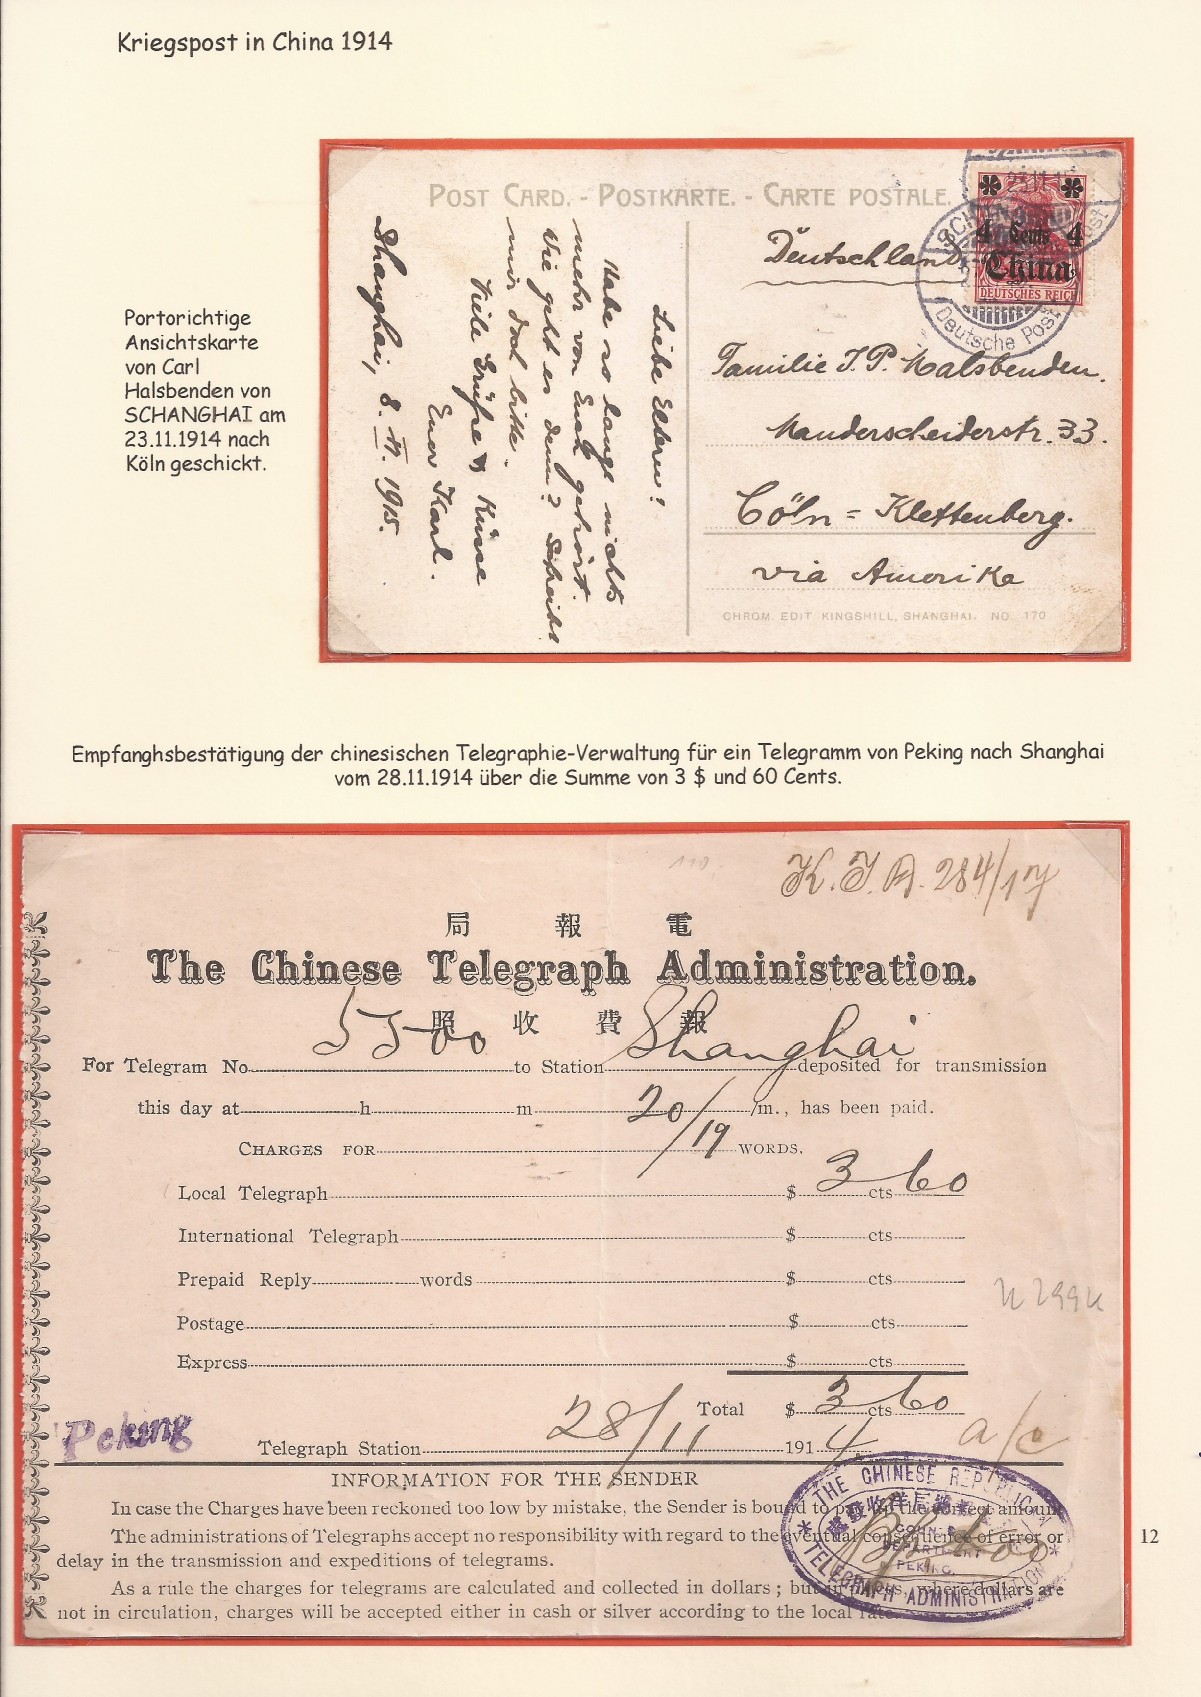 Kriegspost in China 1914
Portorichtige
Ansichtskarte
von Carl
Halsbenden von
SCHANGHAI am
23.11.1914 nach
Köln geschickt.
POST CARD. - POSTKARTE. - CARTE POSTALE.
Shanghai, 8. VI. 1915.
Liebe Eltern!
Habe so lange nichts
mehr von Euch gehört.
Wie geht es denn? Schreibt
mir doch bitte.
Viele Grüße & Küsse
Euer Karl.
4 Cents 4
China
DEUTSCHES REICH
Deutsche Post
Deutschland
Familie J. P. Halsbenden.
Manderscheiderstr. 33.
Cöln = Klettenberg.
via Amerika
CHROM. EDIT KINGSHILL, SHANGHAI. NO. 170
Empfanghsbestätigung der chinesischen Telegraphie-Verwaltung für ein Telegramm von Peking nach Shanghai
vom 28.11.1914 über die Summe von 3 $ und 60 Cents.
110.
K. J. A. 284/17
局 報 電
The Chinese Telegraph Administration.
照 收 費 報
For Telegram No 5500 to Station Shanghai deposited for transmission
this day at h m /m., has been paid.
CHARGES FOR 20/19 WORDS.
Local Telegraph $ 3 cts 60
International Telegraph $ cts
Prepaid Reply words $ cts
Postage $ cts
Express $ cts
Total $ 3 cts 60
Peking
Telegraph Station 28/11 1914
a/c
INFORMATION FOR THE SENDER
In case the Charges have been reckoned too low by mistake, the Sender is bound to pay up the correct amount
The administrations of Telegraphs accept no responsibility with regard to the eventual consequence of error or
delay in the transmission and expeditions of telegrams.
As a rule the charges for telegrams are calculated and collected in dollars; but in places, where dollars are
not in circulation, charges will be accepted either in cash or silver according to the local rate.
THE CHINESE REPUBLIC
DEPARTMENT
PEKING.
TELEGRAPH ADMINISTRATION
12